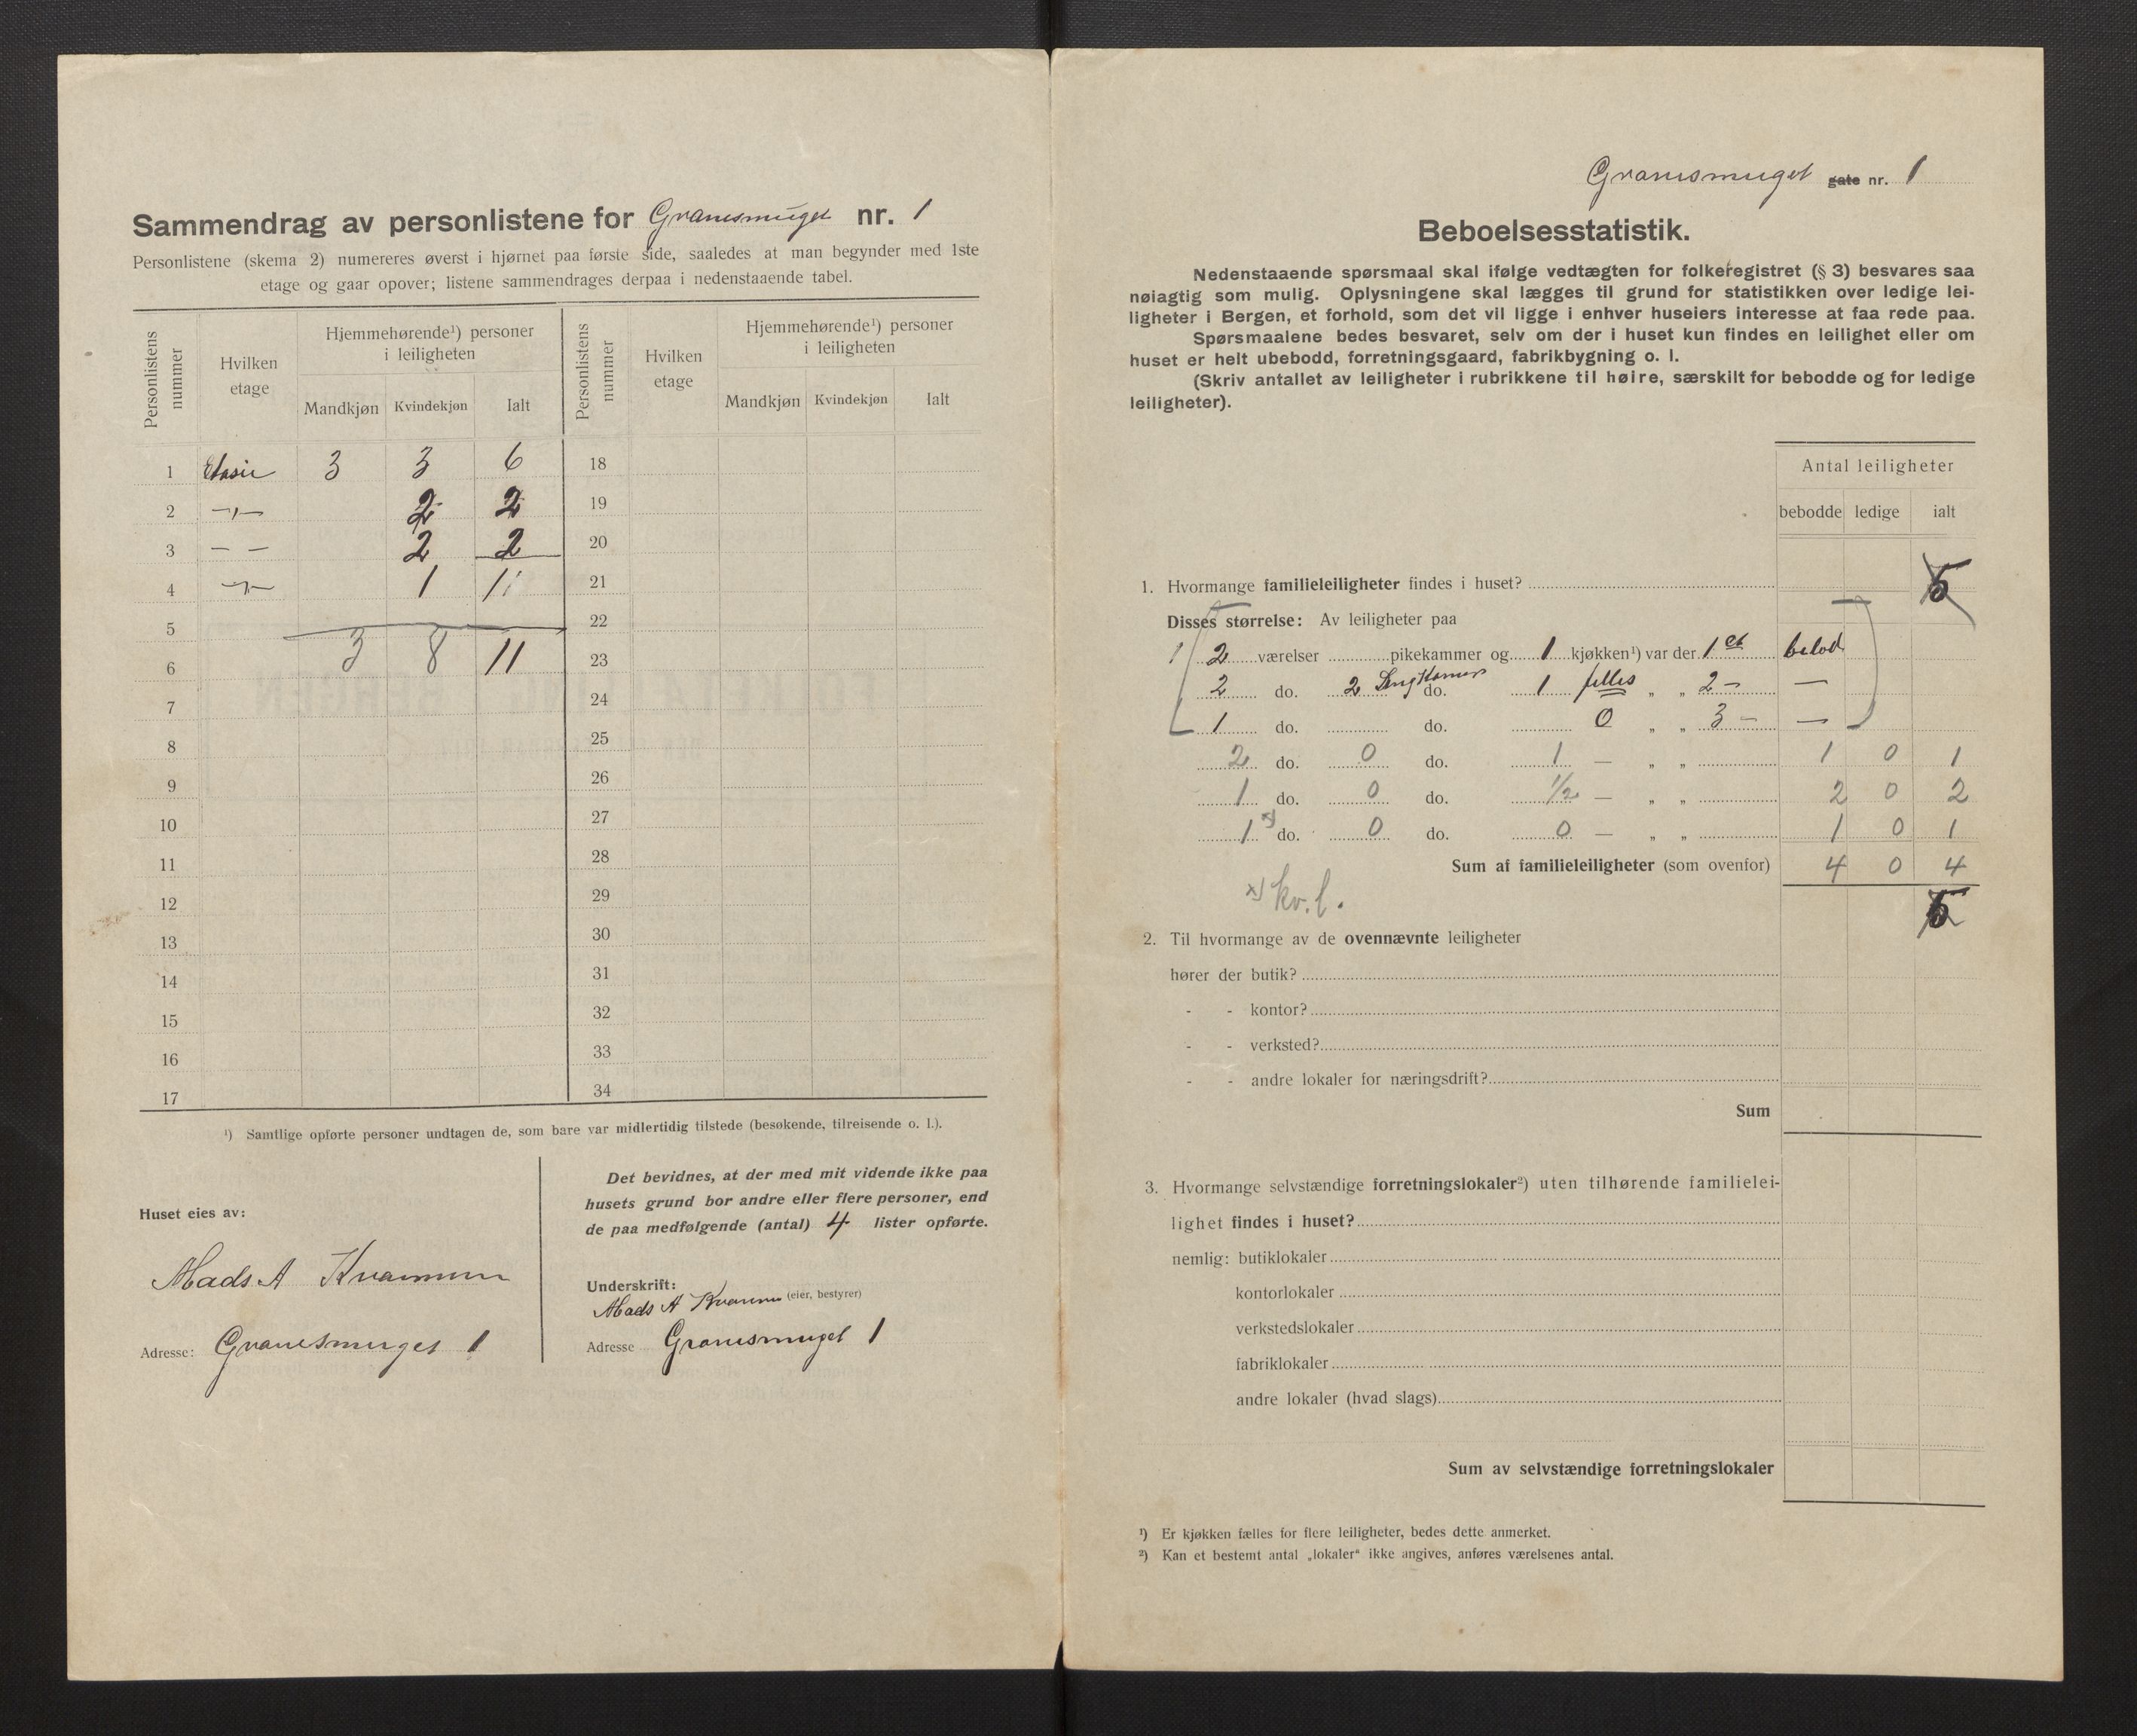 Sammendrag av personlistene for Granesmuget nr. 1
Personlistene (skema 2) numereres øverst i hjørnet paa første side, saaledes at man begynder med 1ste
etage og gaar opover; listene sammendrages derpaa i nedenstaaende tabel.
Personlistens nummer
Hvilken etage
Hjemmehørende¹) personer i leiligheten
Mandkjøn Kvindekjøn Ialt
Personlistens nummer
Hvilken etage
Hjemmehørende¹) personer i leiligheten
Mandkjøn Kvindekjøn Ialt
1 3 3 6 18
2 —„— 2 2 19
3 — — 2 2 20
4 —„— 1 1 21
5 22
3 8 11
6 23
7 24
8 25
9 26
10 27
11 28
12 29
13 30
14 31
15 32
16 33
17 34
¹) Samtlige opførte personer undtagen de, som bare var midlertidig tilstede (besøkende, tilreisende o. l.).
Huset eies av:
Mads A
Adresse: Granesmuget 1
Det bevidnes, at der med mit vidende ikke paa
husets grund bor andre eller flere personer, end
de paa medfølgende (antal) 4 lister opførte.
Underskrift:
Mads A (eier, bestyrer)
Adresse Granesmuget 1
Granesmuget gate nr. 1
Beboelsesstatistik.
Nedenstaaende spørsmaal skal ifølge vedtægten for folkeregistret (§ 3) besvares saa
nøiagtig som mulig. Oplysningene skal lægges til grund for statistikken over ledige lei-
ligheter i Bergen, et forhold, som det vil ligge i enhver huseiers interesse at faa rede paa.
Spørsmaalene bedes besvaret, selv om der i huset kun findes en leilighet eller om
huset er helt ubebodd, forretningsgaard, fabrikbygning o. l.
(Skriv antallet av leiligheter i rubrikkene til høire, særskilt for bebodde og for ledige
leiligheter).
Antal leiligheter
bebodde ledige ialt
1. Hvormange familieleiligheter findes i huset? 5
Disses størrelse: Av leiligheter paa
2 værelser pikekammer og 1 kjøkken¹) var der 1 et bebod
2 do. 2 do. 1 felles „ „ 2 — —
1 do. do. 0 „ „ 3 — —
2 do. 0 do. 1 — „ „ 1 0 1
1 do. 0 do. 1/2 — „ „ 2 0 2
1 x) do. 0 do. 0 — „ „ 1 0 1
Sum af familieleiligheter (som ovenfor) 4 0 4
x) kv. l. 5
2. Til hvormange av de ovennævnte leiligheter
hører der butik?
- - kontor?
- - verksted?
- - andre lokaler for næringsdrift?
Sum
3. Hvormange selvstændige forretningslokaler²) uten tilhørende familielei-
lighet findes i huset?
nemlig: butiklokaler
kontorlokaler
verkstedslokaler
fabriklokaler
andre lokaler (hvad slags)
Sum av selvstændige forretningslokaler
¹) Er kjøkken fælles for flere leiligheter, bedes dette anmerket.
²) Kan et bestemt antal „lokaler“ ikke angives, anføres værelsenes antal.